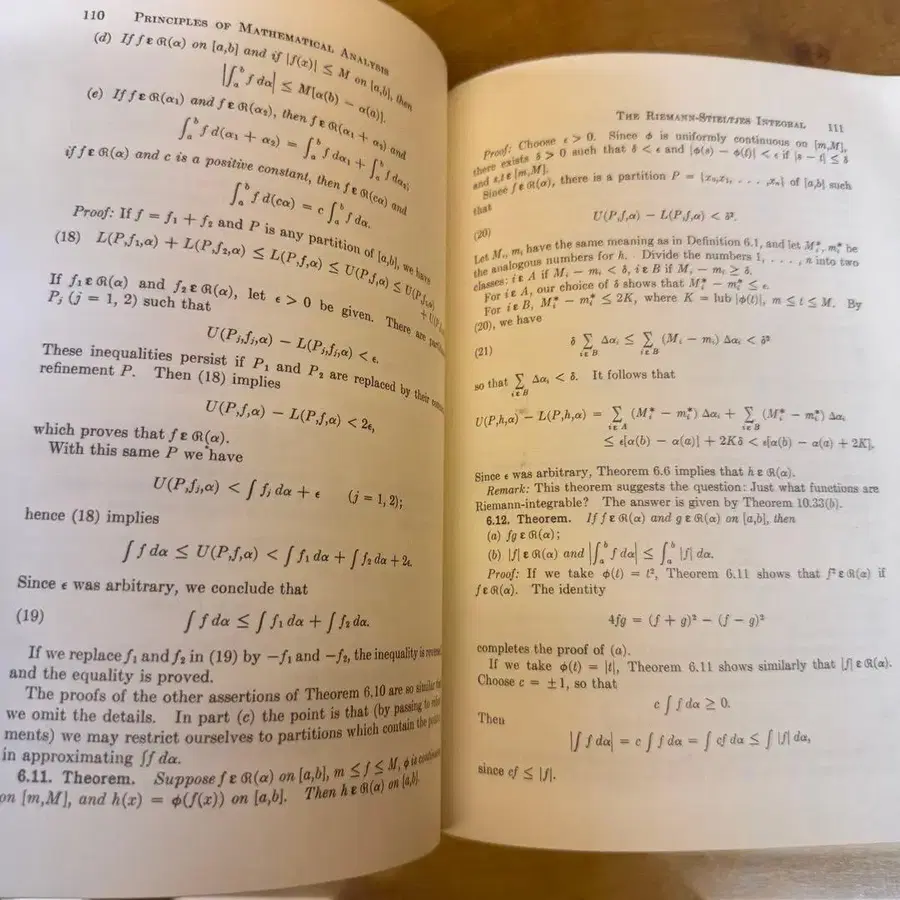 110 PRINCIPLES OF MATHEMATICAL ANALYSIS
(d) If f ε ℛ(α) on [a,b] and if |f(x)| ≤ M on [a,b], then
|∫ₐᵇ f dα| ≤ M[α(b) − α(a)].
(e) If f ε ℛ(α₁) and f ε ℛ(α₂), then f ε ℛ(α₁ + α₂) and
∫ₐᵇ f d(α₁ + α₂) = ∫ₐᵇ f dα₁ + ∫ₐᵇ f dα₂;
if f ε ℛ(α) and c is a positive constant, then f ε ℛ(cα) and
∫ₐᵇ f d(cα) = c ∫ₐᵇ f dα.
Proof: If f = f₁ + f₂ and P is any partition of [a,b], we have
(18) L(P,f₁,α) + L(P,f₂,α) ≤ L(P,f,α) ≤ U(P,f,α) ≤ U(P,f₁,α)
+ U(P
If f₁ ε ℛ(α) and f₂ ε ℛ(α), let ϵ > 0 be given. There are
Pⱼ (j = 1, 2) such that
U(Pⱼ,fⱼ,α) − L(Pⱼ,fⱼ,α) < ϵ.
These inequalities persist if P₁ and P₂ are replaced by their
refinement P. Then (18) implies
U(P,f,α) − L(P,f,α) < 2ϵ,
which proves that f ε ℛ(α).
With this same P we have
U(P,fⱼ,α) < ∫ fⱼ dα + ϵ (j = 1, 2);
hence (18) implies
∫ f dα ≤ U(P,f,α) < ∫ f₁ dα + ∫ f₂ dα + 2ϵ.
Since ϵ was arbitrary, we conclude that
(19) ∫ f dα ≤ ∫ f₁ dα + ∫ f₂ dα.
If we replace f₁ and f₂ in (19) by −f₁ and −f₂, the inequality is
and the equality is proved.
The proofs of the other assertions of Theorem 6.10 are so similar
we omit the details. In part (c) the point is that (by passing to
ments) we may restrict ourselves to partitions which contain the
in approximating ∫f dα.
6.11. Theorem. Suppose f ε ℛ(α) on [a,b], m ≤ f ≤ M, ϕ is
on [m,M], and h(x) = ϕ(f(x)) on [a,b]. Then h ε ℛ(α) on [a,b].
THE RIEMANN-STIELTJES INTEGRAL 111
Proof: Choose ϵ > 0. Since ϕ is uniformly continuous on [m,M],
there exists δ > 0 such that δ < ϵ and |ϕ(s) − ϕ(t)| < ϵ if |s − t| ≤ δ
and s,t ε [m,M].
Since f ε ℛ(α), there is a partition P = {x₀,x₁, . . . ,xₙ} of [a,b] such
that
(20) U(P,f,α) − L(P,f,α) < δ².
Let Mᵢ, mᵢ have the same meaning as in Definition 6.1, and let Mᵢ*, mᵢ* be
the analogous numbers for h. Divide the numbers 1, . . . , n into two
classes: i ε A if Mᵢ − mᵢ < δ, i ε B if Mᵢ − mᵢ ≥ δ.
For i ε A, our choice of δ shows that Mᵢ* − mᵢ* ≤ ϵ.
For i ε B, Mᵢ* − mᵢ* ≤ 2K, where K = lub |ϕ(t)|, m ≤ t ≤ M. By
(20), we have
(21) δ ∑_{i ε B} Δαᵢ ≤ ∑_{i ε B} (Mᵢ − mᵢ) Δαᵢ < δ²
so that ∑_{i ε B} Δαᵢ < δ. It follows that
U(P,h,α) − L(P,h,α) = ∑_{i ε A} (Mᵢ* − mᵢ*) Δαᵢ + ∑_{i ε B} (Mᵢ* − mᵢ*) Δαᵢ
≤ ϵ[α(b) − α(a)] + 2Kδ < ϵ[α(b) − α(a) + 2K].
Since ϵ was arbitrary, Theorem 6.6 implies that h ε ℛ(α).
Remark: This theorem suggests the question: Just what functions are
Riemann-integrable? The answer is given by Theorem 10.33(b).
6.12. Theorem. If f ε ℛ(α) and g ε ℛ(α) on [a,b], then
(a) fg ε ℛ(α);
(b) |f| ε ℛ(α) and |∫ₐᵇ f dα| ≤ ∫ₐᵇ |f| dα.
Proof: If we take ϕ(t) = t², Theorem 6.11 shows that f² ε ℛ(α) if
f ε ℛ(α). The identity
4fg = (f + g)² − (f − g)²
completes the proof of (a).
If we take ϕ(t) = |t|, Theorem 6.11 shows similarly that |f| ε ℛ(α).
Choose c = ±1, so that
c ∫ f dα ≥ 0.
Then
|∫ f dα| = c ∫ f dα = ∫ cf dα ≤ ∫ |f| dα,
since cf ≤ |f|.